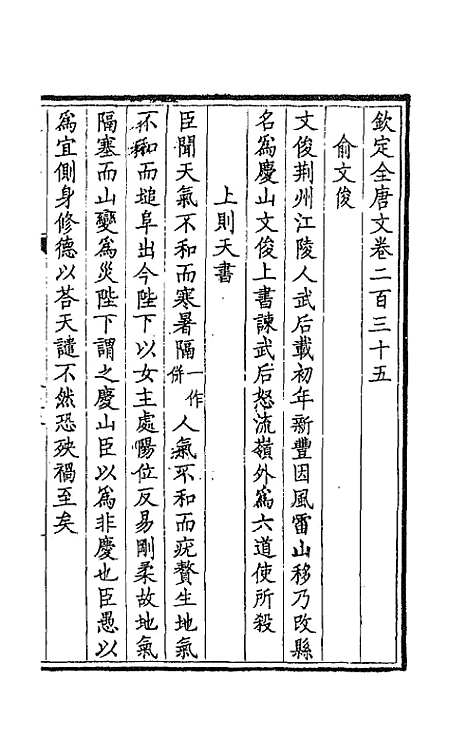 欽定全唐文卷二百三十五
俞文俊
文俊荆州江陵人武后載初年新豐因風雷山移乃改縣
名為慶山文俊上書諫武后怒流嶺外為六道使所殺
上則天書
臣聞天氣不和而寒暑隔一作併人氣不和而疣贅生地氣
不和而塠阜出今陛下以女主處陽位反易剛柔故地氣
隔塞而山變為災陛下謂之慶山臣以為非慶也臣愚以
為宜側身修德以荅天譴不然恐殃禍至矣